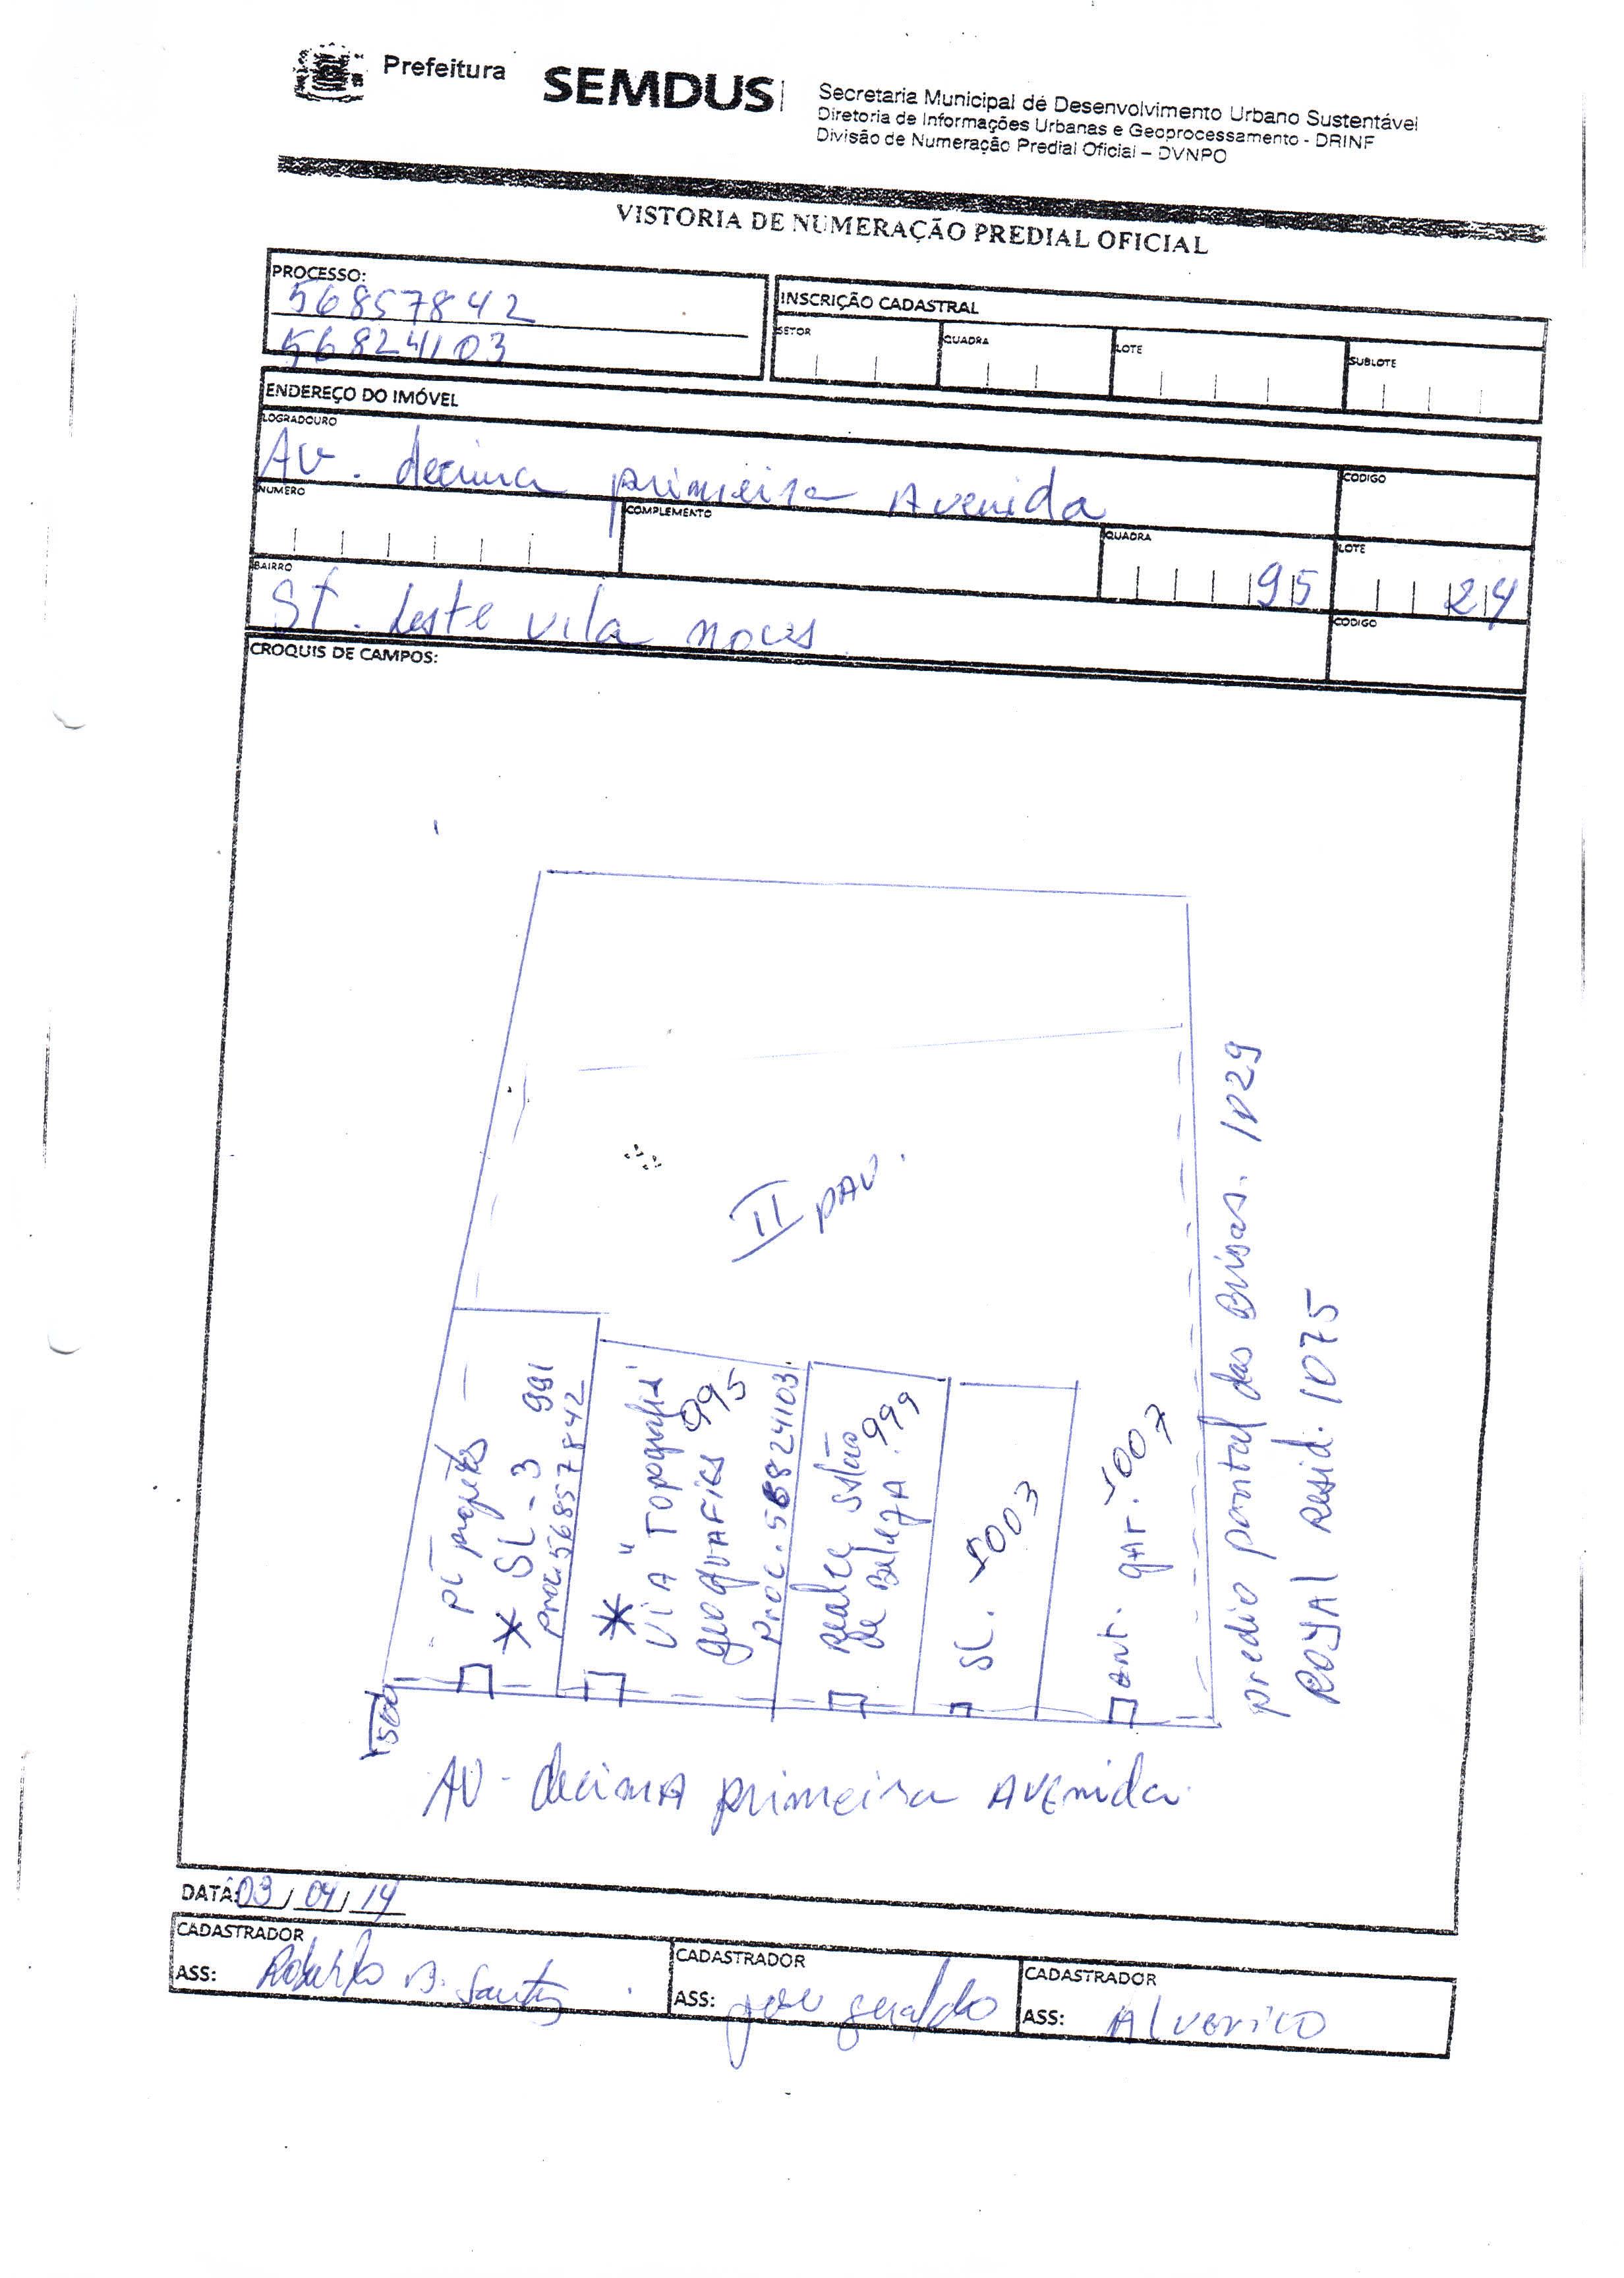 Prefeitura
SEMDUS
Secretaria Municipal de Desenvolvimento Urbano Sustentável
Diretoria de Informações Urbanas e Geoprocessamento - DRINF
Divisão de Numeração Predial Oficial – DVNPO
VISTORIA DE NUMERAÇÃO PREDIAL OFICIAL
PROCESSO:
56857842
56824103
INSCRIÇÃO CADASTRAL
SETOR
QUADRA
LOTE
SUBLOTE
ENDEREÇO DO IMÓVEL
LOGRADOURO
AV. decima primeira Avenida
CODIGO
NUMERO
COMPLEMENTO
QUADRA
95
LOTE
24
BAIRRO
St. Leste vila nova
CODIGO
CROQUIS DE CAMPOS:
II PAV.
* SL - 3 991
Proc. 56857842
*
VIA "Topografia"
995
Proc. 56824103
Realce salão
de Beleza 999
SL. 1003
ent. gar. 1007
predio pontal das Brisas. 1029
ROYAL Resid. 1075
AV - decima primeira AVEnida
DATA: 03 / 04 / 14
CADASTRADOR
ASS: Roberto Santos
CADASTRADOR
ASS: jose geraldo
CADASTRADOR
ASS: Alverico